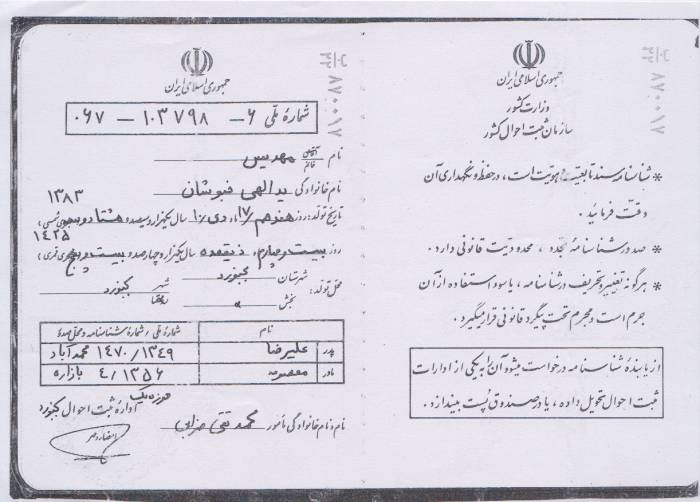 جمهوری اسلامی ایران
وزارت کشور
سازمان ثبت احوال کشور
* شناسنامه سند تابعیت و هویت است، در حفظ و نگهداری آن
دقت فرمائید.
* صدور شناسنامه مجدد، محدودیت قانونی دارد.
* هرگونه تغییر و تحریف در شناسنامه، یا سوء استفاده از آن
جرم است و مجرم تحت پیگرد قانونی قرار میگیرد.
از یابندهٔ شناسنامه درخواست میشود آن را به یکی از ادارات
ثبت احوال تحویل داده، یا در صندوق پست بیندازد.
۸۷۰۰۱۷
جمهوری اسلامی ایران
شمارهٔ ملی ۶ - ۱۰۳۷۹۸ - ۰۶۷
نام آقای خانم مهدیس
نام خانوادگی یدالهی
۱۳۸۳
تاریخ تولد: روز هفدهم /۱۷ ماه دی /۱۰ سال یکهزار و سیصد و هشتاد و سه شمسی،
۱۴۲۵
روز بیست و چهارم، ذیقعده سال یکهزار و چهارصد و بیست و پنج هجری قمری
محل تولد: شهرستان بجنورد شهر بجنورد
بخش
نام شمارهٔ ملی / شمارهٔ شناسنامه و محل صدور
پدر علیرضا ۱۳۴۹ / ۱۴۷۰ محمدآباد
مادر معصومه ۱۳۵۶ / ۴ بازاره
ادارهٔ ثبت احوال بجنورد
نام و نام خانوادگی مأمور محمد تقی
۸۷۰۰۱۷